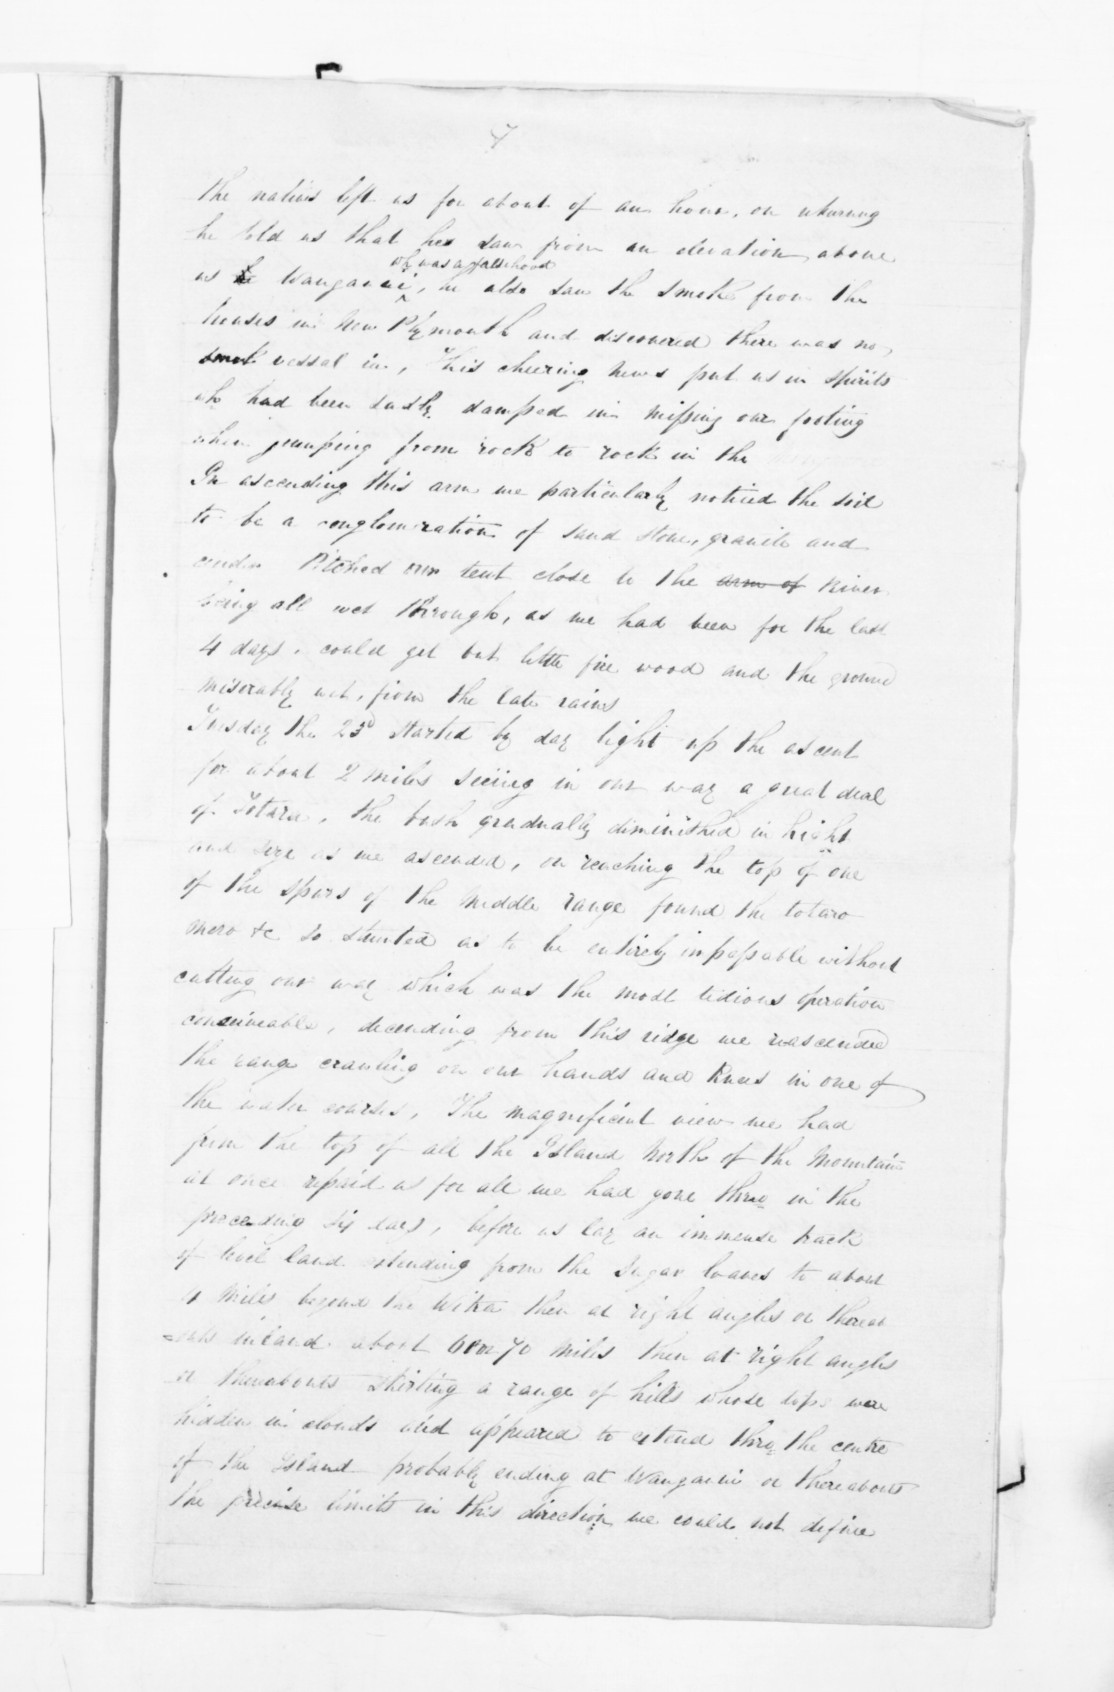 7
the natives left us for about of an hour, on returning
he told us that he saw from an elevation above
which was a falsehood
us to Wanganui, he also saw the smoke from the
houses in New Plymouth and discovered there was no
vessel in, This cheering news put us in spirits
wh had been sadly damped in missing our footing
when jumping from rock to rock in the
In ascending this arm we particularly noticed the soil
to be a conglomeration of sand stone, granite and
cinder Pitched our tent close to the arm of River
being all wet through, as we had been for the last
4 days, could get but little fire wood and the ground
miserably wet, from the late rains
Tuesday the 23d Started by day light up the ascent
for about 2 miles seeing in our way a great deal
of Totara, the bush gradually diminished in hight
and size as we ascended, on reaching the top of one
of the spurs of the middle range found the totaro
mero &c so stunted as to be entirely inpassable without
cutting our way which was the most tidious operation
conceiveable, decending from this ridge we reascended
the range crawling on our hands and knees in one of
the water courses, The magnificent view we had
from the top of all the Island North of the Mountain
at once repaid us for all we had gone thro in the
preceding six days, before us lay an immense track
of level land extending from the Sugar loaves to about
4 miles beyond the Witra then at right angles or thereab
=outs inland about 60 or 70 miles then at right angles
or thereabouts skirting a range of hills whose tops were
hidden in clouds and appeared to extend thro the centre
of the Island probably ending at Wanganui or thereabouts
the precise limits in this direction we could not define